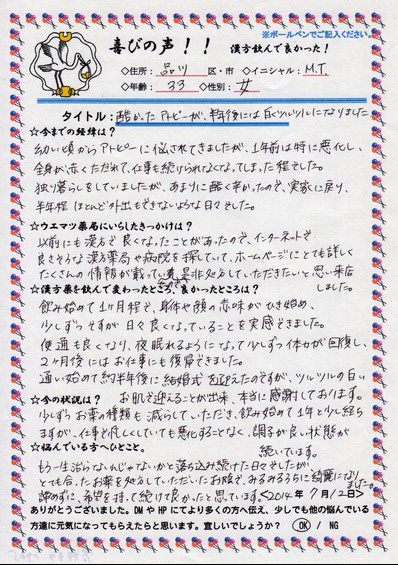 ※ボールペンでご記入ください。
喜びの声！！ 漢方飲んで良かった！
◇住所： 品川 区・市 ◇イニシャル： M.T.
◇年齢： 33 ◇性別： 女
タイトル： 酷かったアトピーが、半年後には白くツルツルになりました
☆今までの経緯は？
幼い頃からアトピーに悩まされてきましたが、1年前は特に悪化し、
全身が赤くただれて、仕事も続けられなくなってしまった程でした。
独り暮らしをしていましたが、あまりに酷く辛かったので、実家に戻り、
半年程ほとんど外出もできないような日々でした。
☆ウエマツ薬局にいらしたきっかけは？
以前にも漢方で良くなったことがあったので、インターネットで
良さそうな漢方薬局や病院を探していて、ホームページにとても詳しく
たくさんの情報が載っていた為、是非処方していただきたいと思い来店
しました。
☆漢方薬を飲んで変わったところ、良かったところは？
飲み始めて1ヶ月程で、身体や顔の赤味がひき始め、
少しずつですが日々良くなっていることを実感できました。
便通も良くなり、夜眠れるようになって少しずつ体力が回復し、
2ヶ月後にはお仕事にも復帰できました。
通い始めて約半年後に結婚式を迎えたのですが、ツルツルの白い
お肌で迎えることが出来、本当に感謝しております。
☆今の状況は？
少しずつお薬の種類も減らしていただき、飲み始めて1年と少し経ち
ますが、仕事で忙しくしていても悪化することなく、調子が良い状態が
続いています。
☆悩んでいる方へひとこと。
もう一生治らないんじゃないかと落ち込み続けた日々でしたが、
とても合ったお薬を処方していただいたお陰で、みるみるうちに綺麗になり
ました。
諦めずに、希望を持って続けて良かったと思います。<2014年 7月12日>
ありがとうございました。DMやHPにてより多くの方へ伝え、少しでも他の悩んでいる
方達に元気になってもらえたらと思います。宜しいでしょうか？ OK / NG